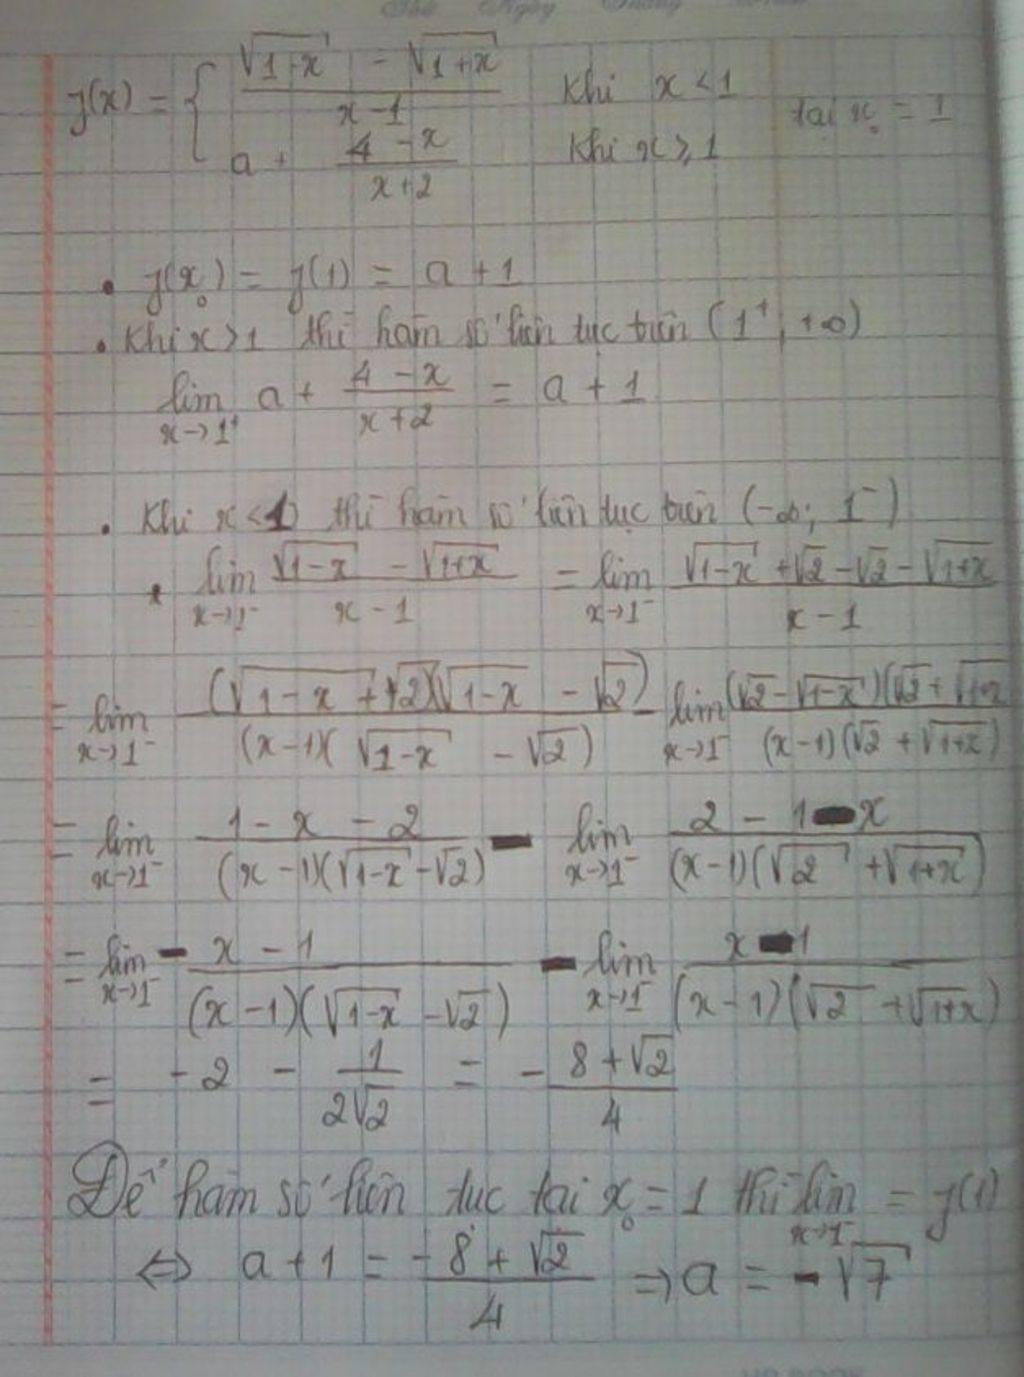 Thứ Ngày Tháng
y(x) = { (√(1-x) - √(1+x))/(x-1) khi x < 1 tại x₀ = 1
a + (4-x)/(x+2) khi x ≥ 1
• y(x₀) = y(1) = a + 1
• Khi x > 1 thì hàm số liên tục trên (1⁺, +∞)
lim x→1⁺ a + (4-x)/(x+2) = a + 1
• Khi x < 1 thì hàm số liên tục trên (-∞; 1⁻)
* lim x→1⁻ (√(1-x) - √(1+x))/(x-1) = lim x→1⁻ (√(1-x) + √2 - √2 - √(1+x))/(x-1)
= lim x→1⁻ ((√(1-x) + √2)(√(1-x) - √2))/((x-1)(√(1-x) - √2)) - lim x→1⁻ ((√2 - √(1-x))(√2 + √(1+x)))/((x-1)(√2 + √(1+x)))
= lim x→1⁻ (1-x-2)/((x-1)(√(1-x) - √2)) - lim x→1⁻ (2-1-x)/((x-1)(√2 + √(1+x)))
= lim x→1⁻ - (x-1)/((x-1)(√(1-x) - √2)) - lim x→1⁻ (x-1)/((x-1)(√2 + √(1+x)))
= -2 - 1/(2√2) = - (8+√2)/4
Để hàm số liên tục tại x₀ = 1 thì lim x→1⁻ = y(1)
⇔ a + 1 = (-8+√2)/4 ⇒ a = -√7